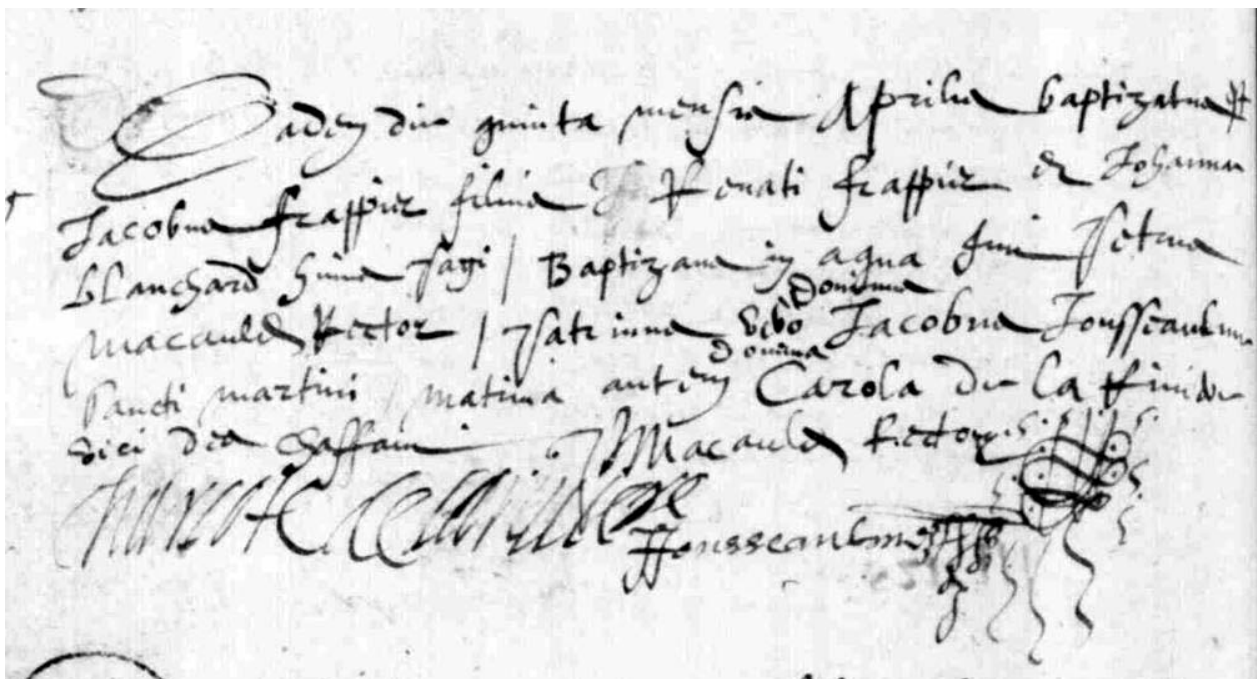 Eadem die quinta mensis Aprilis baptizatus est
Jacobus frappier filius Renati frappier et Johannae
blanchard huius pagi / Baptizans in aqua fui petrus
Macauld Rector / patrinus vero Dominus Jacobus Jousseaulme
sancti martini / matrina autem Domina Carola de La
vici des chaffaui Macauld Rector
J Jousseaulme